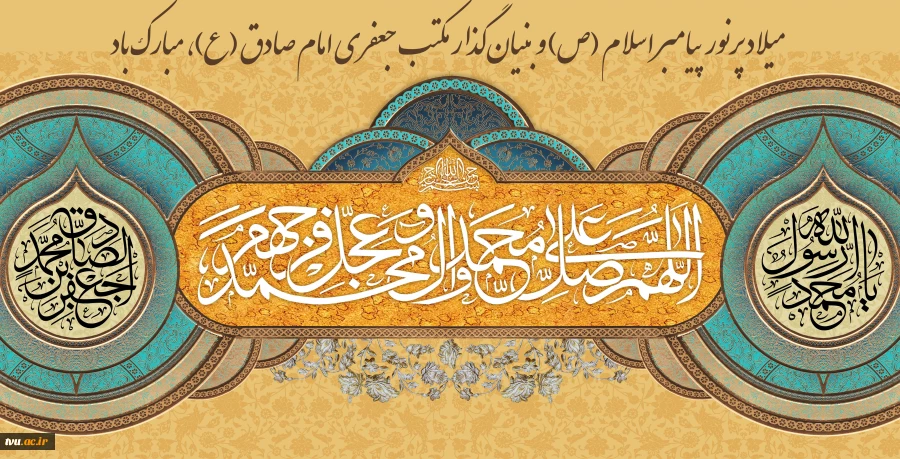 میلاد پر نور پیامبر اسلام (ص) و بنیان گذار مکتب جعفری امام صادق (ع)، مبارک باد
بسم الله الرحمن الرحیم
اللهم صل علی محمد وآل محمد و عجل فرجهم
یا محمد رسول الله
جعفر بن محمد الصادق
tvu.ac.ir